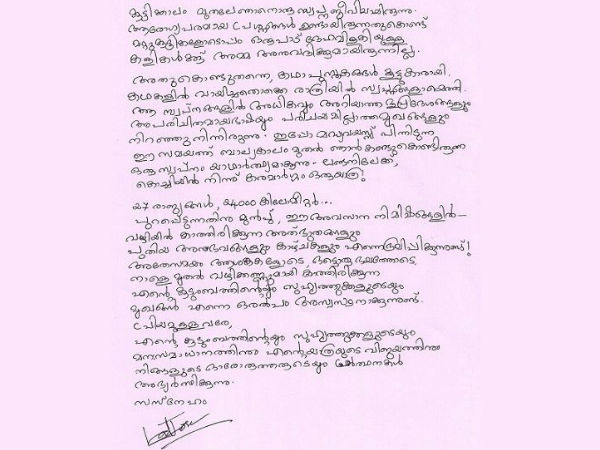 കുട്ടിക്കാലം മുതലേ ഞാനൊരു സ്വപ്ന ജീവിയായിരുന്നു.
ആരോഗ്യപരമായ പ്രശ്നങ്ങൾ ഉണ്ടായിരുന്നതുകൊണ്ട്
മറ്റുകുട്ടികളോടൊപ്പം ഒരുപാട് ദേഹമിളകിയുള്ള
കളികൾക്ക്, അമ്മ അനുവദിക്കുമായിരുന്നില്ല.
അതുകൊണ്ടുതന്നെ, കഥാപുസ്തകങ്ങൾ കൂട്ടുകാരായി.
കഥകളിൽ വായിച്ചതൊക്കെ രാത്രിയിൽ സ്വപ്നങ്ങളായെത്തി.
ആ സ്വപ്നങ്ങളിൽ അധികവും അറിയാത്ത ഭൂപ്രദേശങ്ങളും
അപരിചിതമായഭാഷയും പരിചയമില്ലാത്തമുഖങ്ങളും
നിറഞ്ഞുനിന്നിരുന്നു. ഇപ്പോ മദ്ധ്യവയസ്സ് പിന്നിടുന്ന
ഈ സമയത്ത് ബാല്യകാലം മുതൽ ഞാൻ കണ്ടുകൊണ്ടിരുന്ന
ഒരു സ്വപ്നം യാഥാർത്ഥ്യമാകുന്നു - ലണ്ടനിലേക്ക്,
കൊച്ചിയിൽ നിന്ന് കരമാർഗ്ഗം ഒരുയാത്ര!
27 രാജ്യങ്ങൾ, 24000 കിലോമീറ്റർ...
പുറപ്പെടുന്നതിനു മുൻപ്, ഈ അവസാന നിമിഷങ്ങളിൽ -
വഴിയിൽ കാത്തിരിക്കുന്ന അത്ഭുതങ്ങളും
പുതിയ അനുഭവങ്ങളും കാഴ്ചകളും എന്നെഭ്രമിപ്പിക്കുന്നുണ്ട്!
അതേസമയം ആശങ്കകളോടെ, ഒട്ടൊരുഭയത്തോടെ
നാളെ മുതൽ വഴിക്കണ്ണുമായി കാത്തിരിക്കുന്ന
എന്റെ കുടുംബത്തിന്റെയും സുഹൃത്തുക്കളുടെയും
മുഖങ്ങൾ എന്നെ ഒരൽപം അസ്വസ്ഥനാക്കുന്നുണ്ട്.
പ്രിയമുള്ളവരേ,
എന്റെ കുടുംബത്തിന്റെയും സുഹൃത്തുക്കളുടെയും
മനസമാധാനത്തിനും എന്റെയാത്രയുടെ വിജയത്തിനും
നിങ്ങളുടെ ഓരോരുത്തരുടെയും പ്രാർത്ഥനകൾ
അഭ്യർത്ഥിക്കുന്നു.
സസ്നേഹം